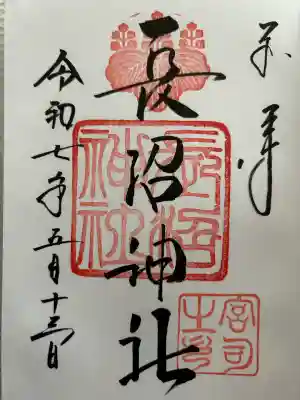 奉拝
長沼神社
令和七年五月十三日
長沼
神社
宮司
之印